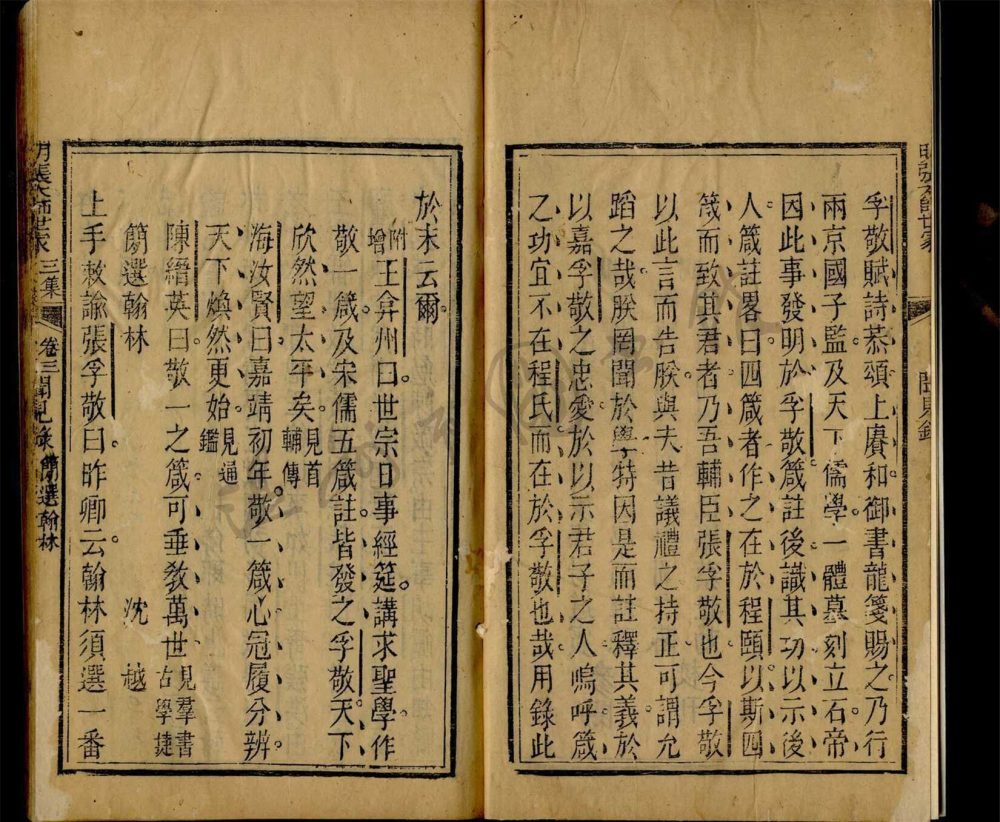 孚敬賦詩恭頌上賡和御書龍箋賜之乃行
兩京國子監及天下儒學一體墓刻立石帝
因此事發明於孚敬箴註後識其功以示後
人箴註畧曰四箴者作之在於程頤以斯四
箋而致其君者乃吾輔臣張孚敬也今孚敬
以此言而告朕與夫昔議禮之持正可謂允
蹈之哉朕罔聞於學特因是而註釋其義於
以嘉孚敬之忠愛於以示君子之人嗚呼箴
之功宜不在程氏而在於孚敬也哉用錄此
明張文忠世家 三集 卷三 聞見錄 簡選翰林
於末云爾
附增王弇州曰世宗日事經筵講求聖學作
敬一箴及宋儒五箴註皆發之孚敬天下
欣然望太平矣見首輔傳
海汝賢曰嘉靖初年敬一箴心冠履分辨
天下煥然更始見通鑑
陳縉英曰敬一之箴可垂教萬世見羣書古學捷
簡選翰林 沈越
上手敕諭張孚敬曰昨卿云翰林須選一番